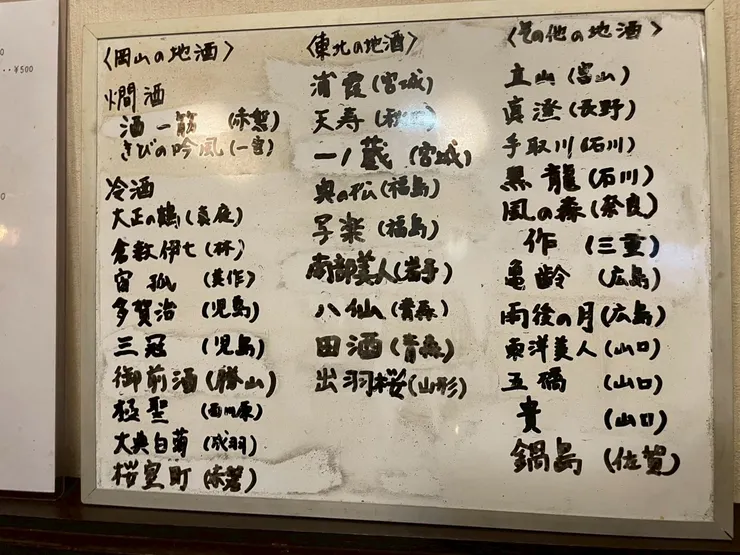 〈岡山の地酒〉
燗酒
酒一筋 (赤磐)
きびの吟風 (一宮)
冷酒
大正の鶴 (真庭)
倉敷伊七 (林)
宙狐 (美作)
多賀治 (児島)
三冠 (児島)
御前酒 (勝山)
極聖 (西川原)
大典白菊 (成羽)
桜室町 (赤磐)
〈東北の地酒〉
浦霞 (宮城)
天寿 (秋田)
一ノ蔵 (宮城)
奥の松 (福島)
写楽 (福島)
南部美人 (岩手)
八仙 (青森)
田酒 (青森)
出羽桜 (山形)
〈その他の地酒〉
立山 (富山)
真澄 (長野)
手取川 (石川)
黒龍 (石川)
風の森 (奈良)
作 (三重)
亀齢 (広島)
雨後の月 (広島)
東洋美人 (山口)
五橋 (山口)
貴 (山口)
鍋島 (佐賀)
¥500